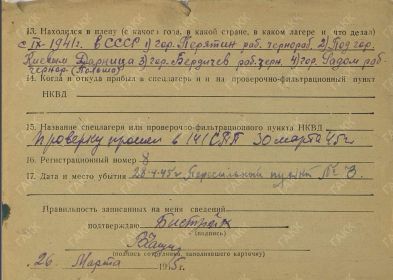 13. Находился в плену (с какого года, в какой стране, в каком лагере и что делал)
с IX-1941г. в СССР 1) гор. Пирятин раб. чернораб. 2) Под гор.
Киевом Дарница 3) гор. Бердичев раб. черн. 4) гор. Радом раб.
чернор. (Польша)
14. Когда и откуда прибыл в спецлагерь и на проверочно-фильтрационный пункт
НКВД
15. Название спецлагеря или проверочно-фильтрационного пункта НКВД
Проверку прошел в 141 СПП 30 марта 45г.
16. Регистрационный номер
17. Дата и место убытия 28-4-45г. Пересыльный пункт № 3.
Правильность записанных на меня сведений
подтверждаю
(подпись)
(подпись сотрудника, заполнявшего карточку)
"26" Марта 1945г.